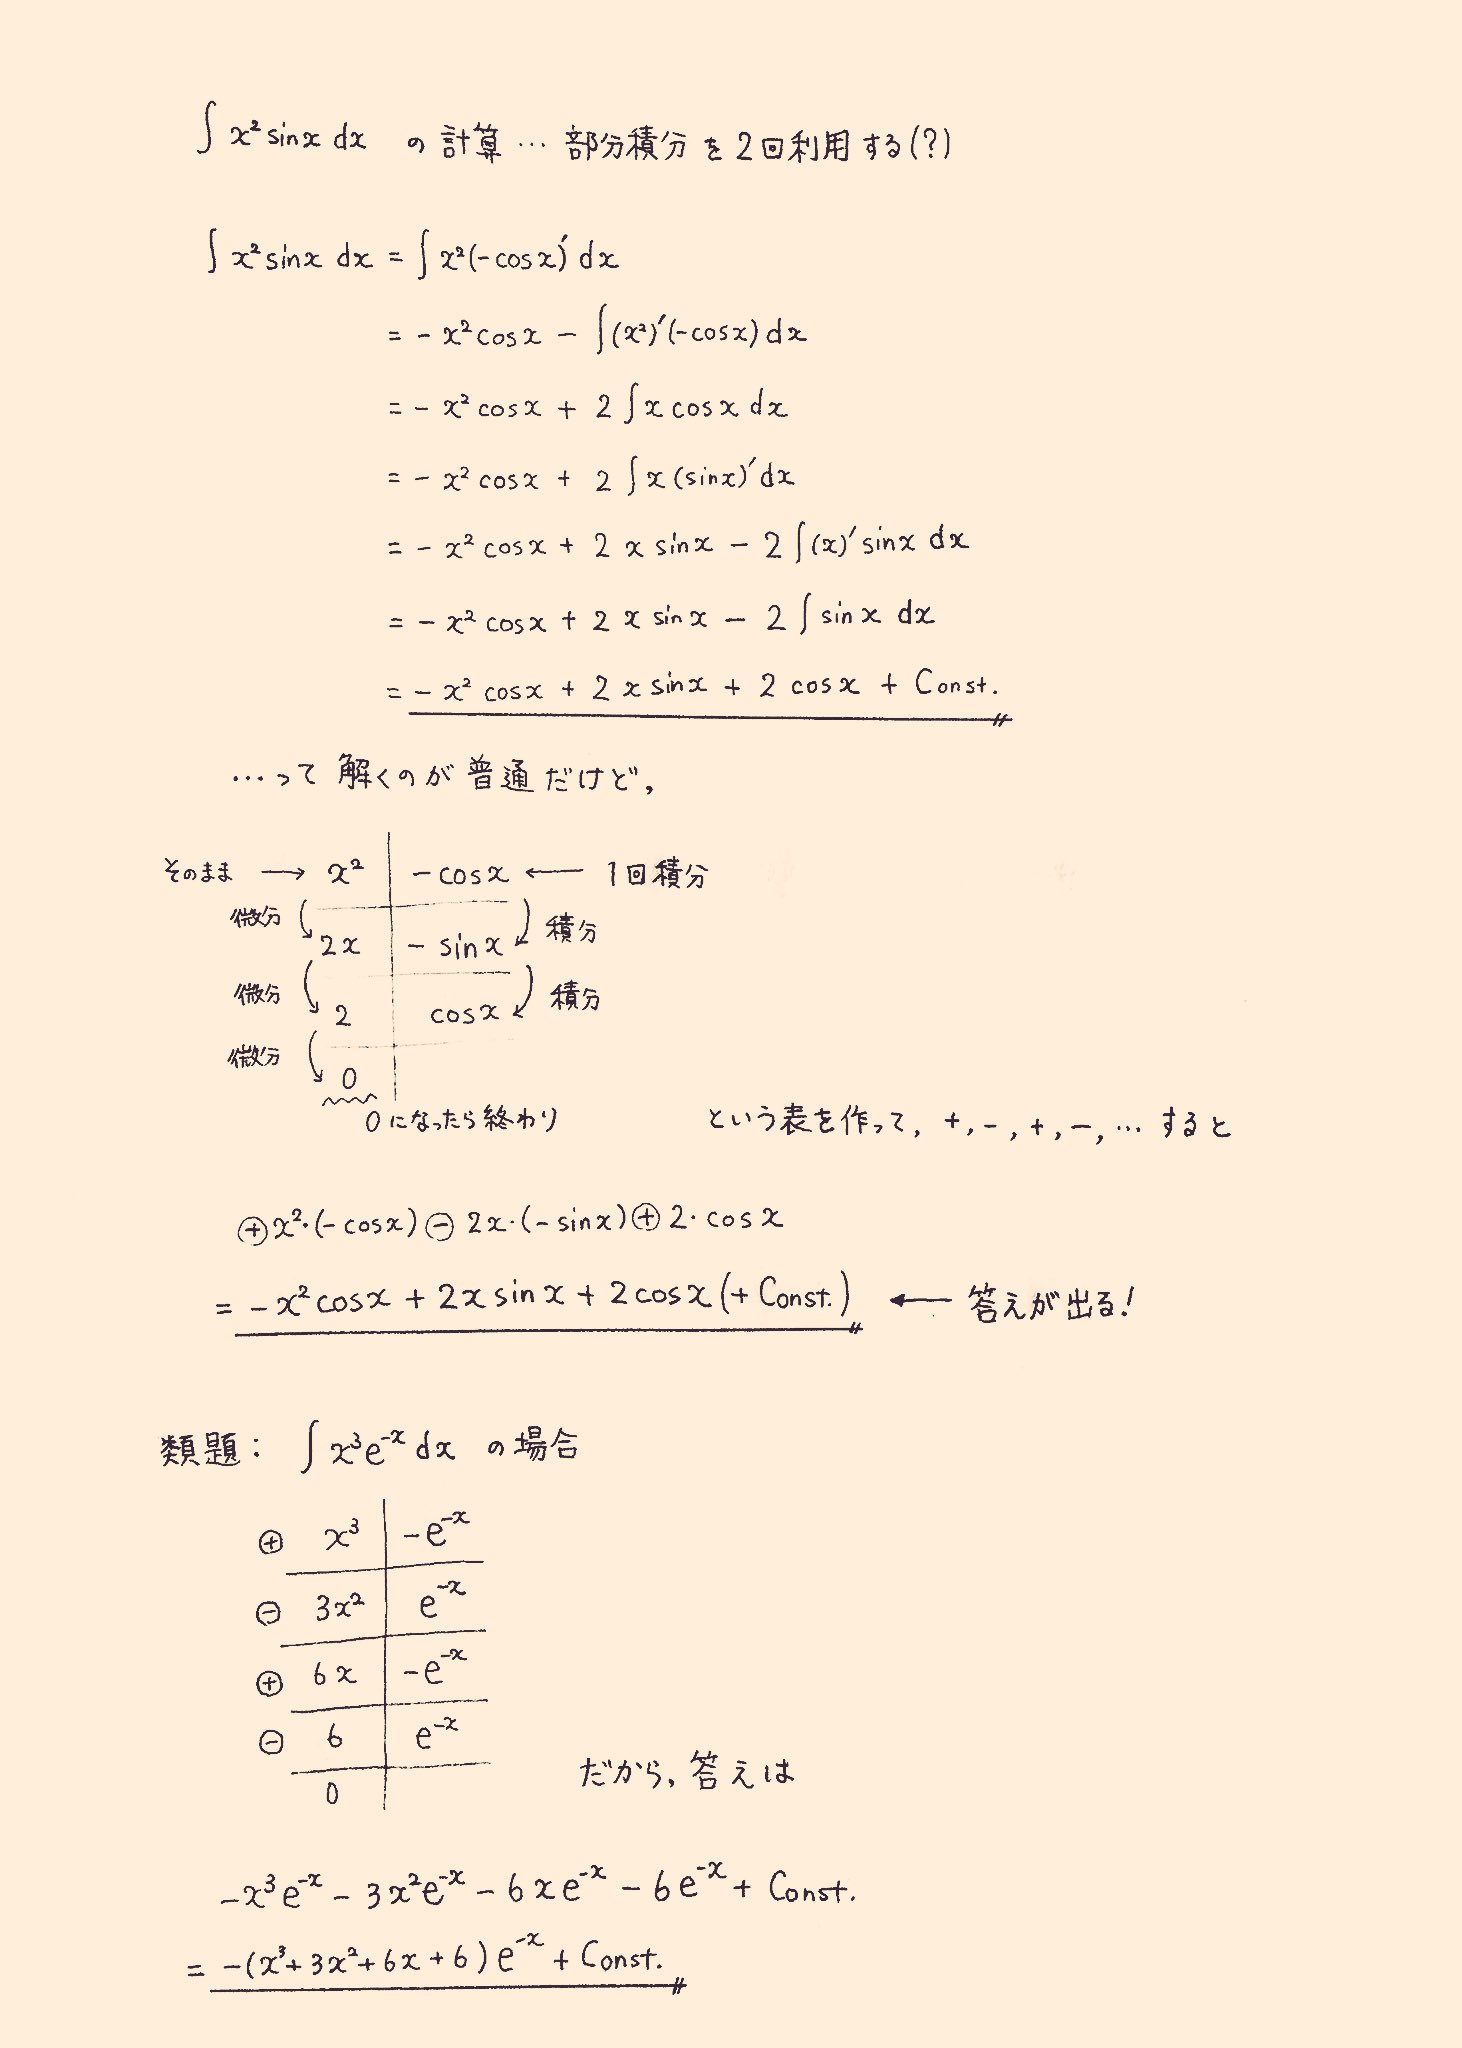 ∫ x² sinx dx の計算 … 部分積分を2回利用する(?)
∫ x² sinx dx = ∫ x² (-cosx)' dx
= - x² cosx - ∫ (x²)' (-cosx) dx
= - x² cosx + 2 ∫ x cosx dx
= - x² cosx + 2 ∫ x (sinx)' dx
= - x² cosx + 2 x sinx - 2 ∫ (x)' sinx dx
= - x² cosx + 2 x sinx - 2 ∫ sinx dx
= - x² cosx + 2 x sinx + 2 cosx + Const.
…って解くのが普通だけど,
そのまま → x² - cosx ← 1回積分
微分 積分
2x - sinx
微分 積分
2 cosx
微分
0
0になったら終わり という表を作って, +, -, +, -, … すると
⊕ x²・(- cosx) ⊖ 2x・(- sinx) ⊕ 2・cosx
= - x² cosx + 2x sinx + 2cosx (+ Const.) ← 答えが出る!
類題: ∫ x³e⁻ˣ dx の場合
⊕ x³ -e⁻ˣ
⊖ 3x² e⁻ˣ
⊕ 6x -e⁻ˣ
⊖ 6 e⁻ˣ
0 だから, 答えは
-x³e⁻ˣ - 3x²e⁻ˣ - 6xe⁻ˣ - 6e⁻ˣ + Const.
= -(x³+3x²+6x+6)e⁻ˣ + Const.